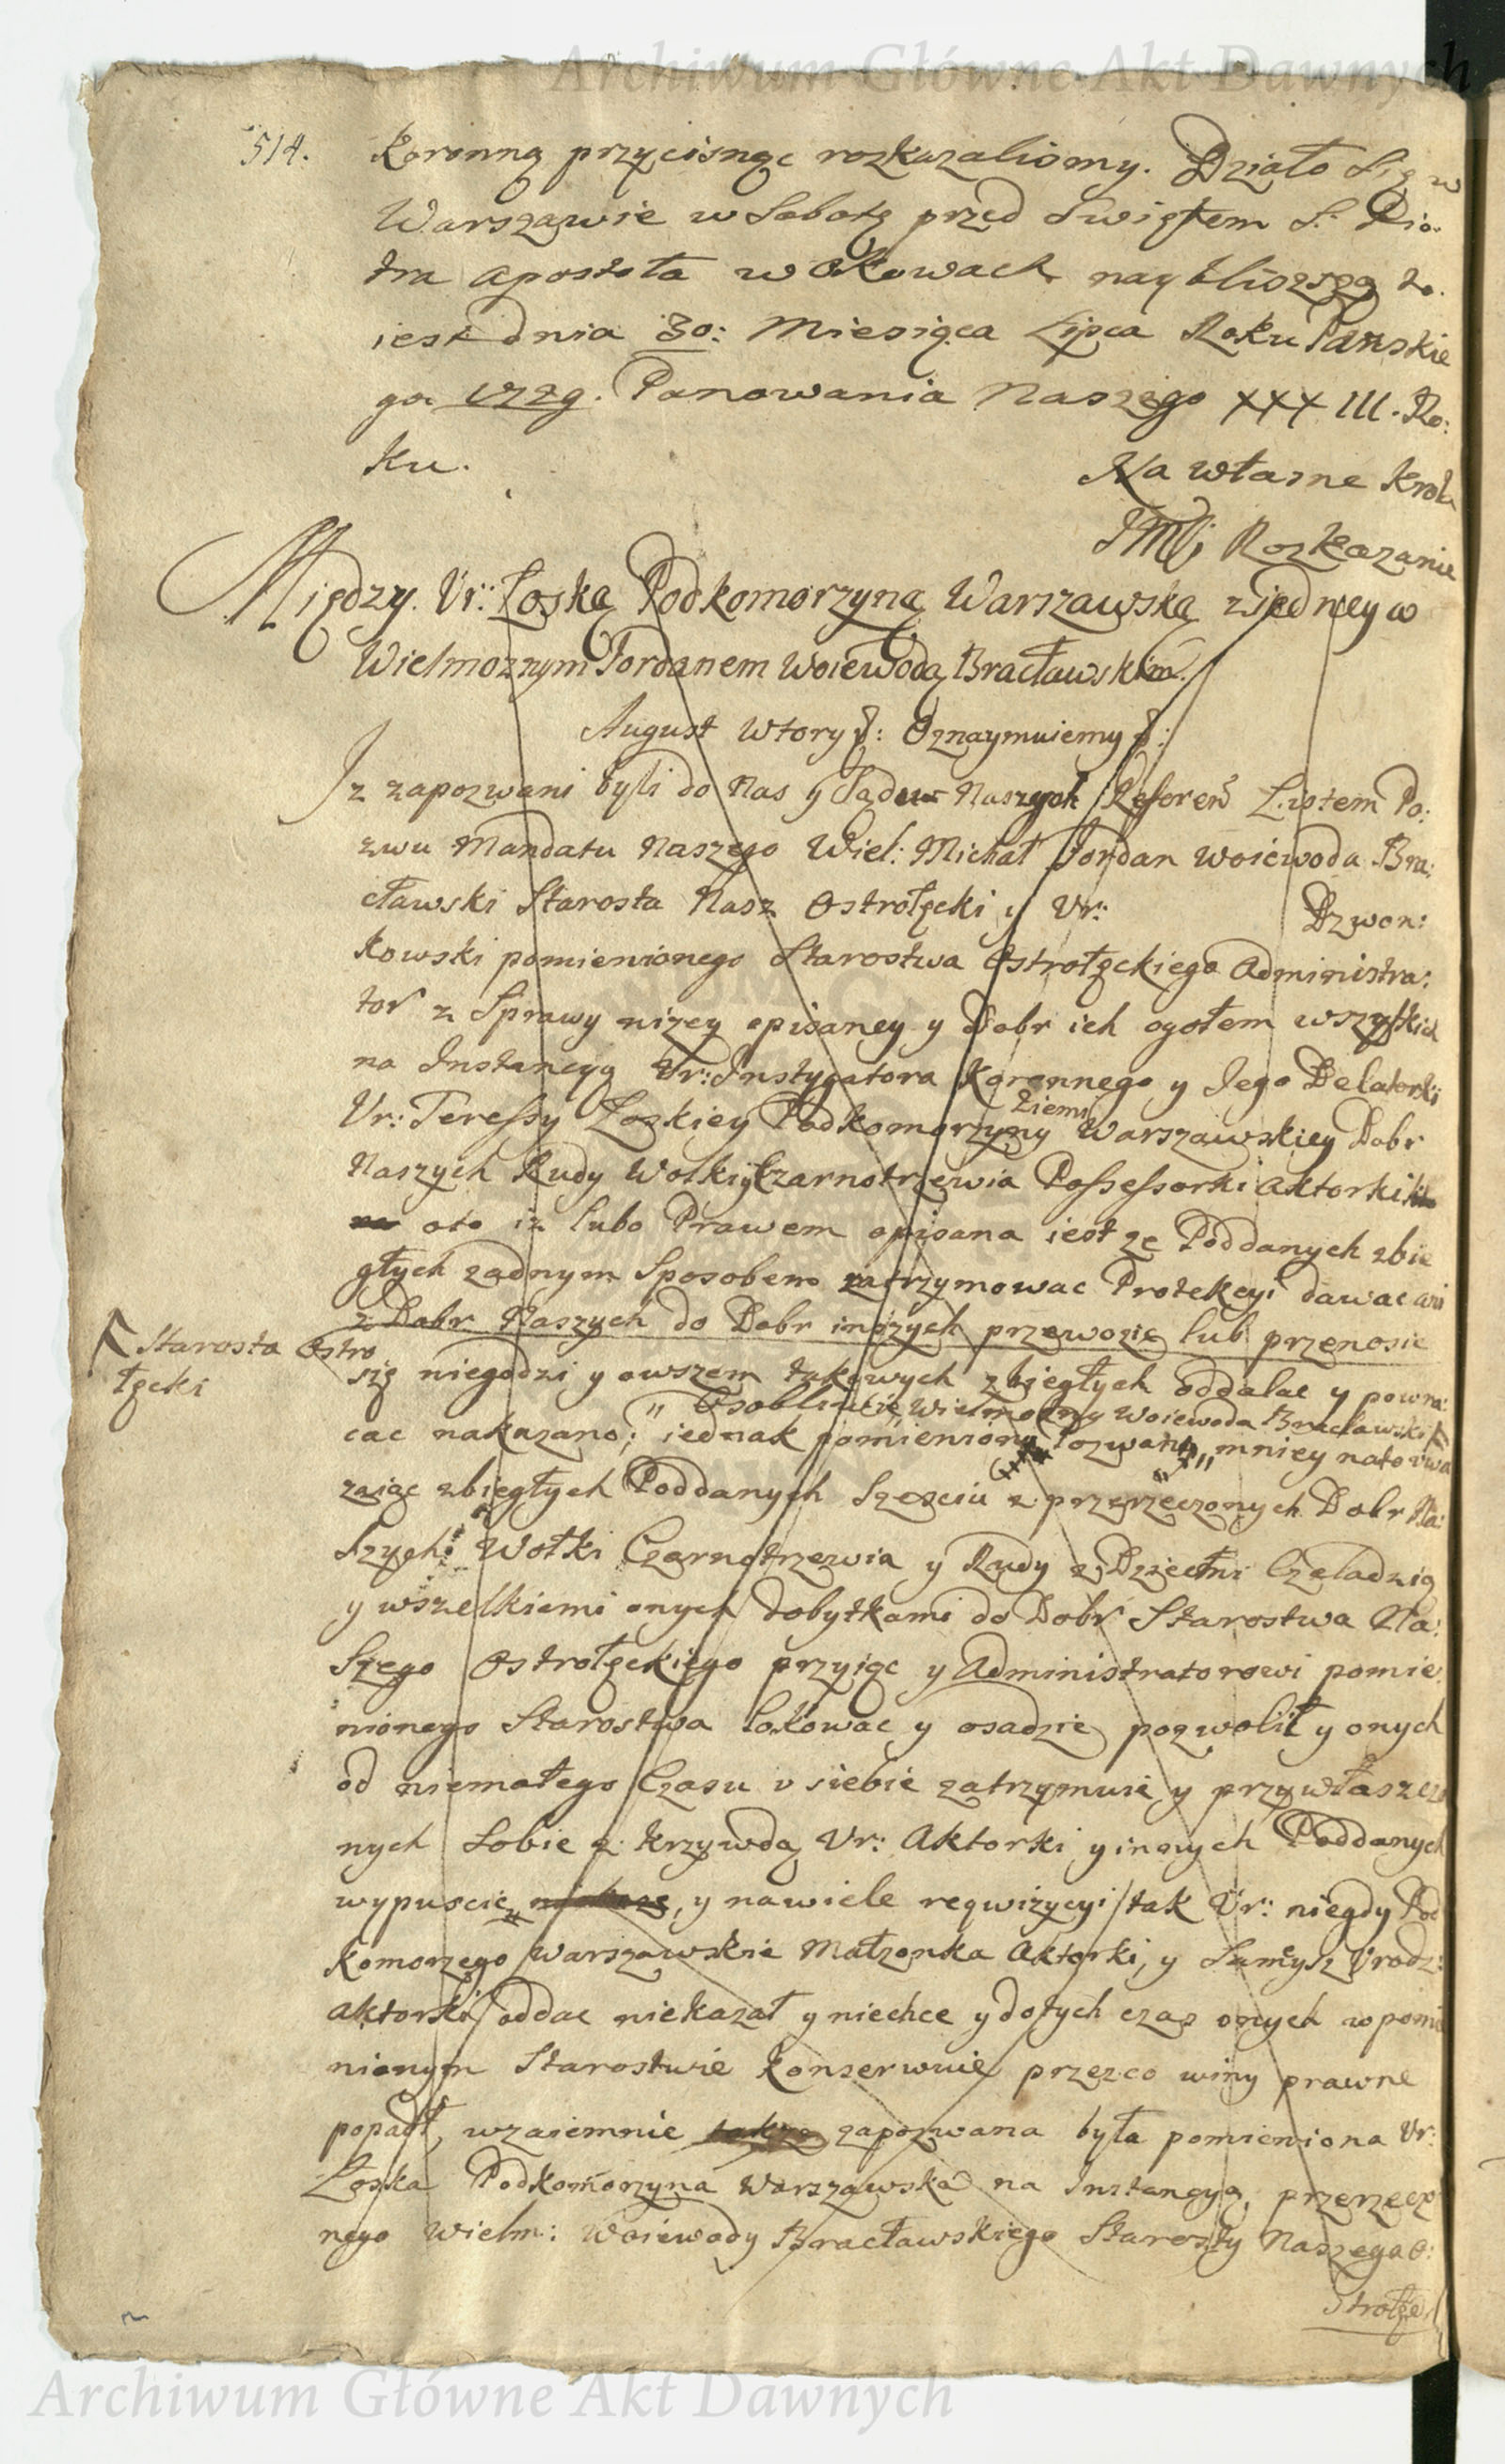 Archiwum Główne Akt Dawnych
514.
Koronną przycisnąc rozkazalismy. Działo Się w
Warszawie w Sobotę przed Swiętem S: Pio:
tra Apostoła w Okowach nayblizszą to.
iest dnia 30: Miesiąca Lipca Roku Panskie
go 1729. Panowania Naszego XXXIII. Ro:
ku.
Na własne Krola
JMCi Rozkazanie
Między Ur: Łoską Podkomorzyną Warszawską z iedney w
Wielmoznym Jordanem Woiewodą Bracławskim.
August Wtory &: Oznaymuiemy &:
Iz zapozwani byli do Nas y Sądow Naszych Referen Listem Po:
zwu Mandatu Naszego Wiel: Michał Jordan Woiewoda Bra:
cławski Starosta Nasz Ostrołęcki y Ur: Dzwon:
kowski pomienionego Starostwa Ostrołęckiego Administra:
tor z Sprawy nizey opisaney y Dobr ich ogołem wszystkich
na Instancyą Ur: Instygatora Koronnego y Jego Delatorki
Ur: Teressy Łoskiey Podkomorzyny Ziemi Warszawskiey Dobr
Naszych Rudy Wolki y Czarnotrzewia Possessorki Aktorki
oto iz lubo Prawem opisana iest ze Poddanych zbie
głych zadnym Sposobem zatrzymowac Protekcyi dawac ani
z Dobr Naszych do Dobr inszych przewozic lub przenosic
Starosta Ostro
łęcki
się niegodzi y owszem takowych zbiegłych oddalac y powra:
Osobliwie Wielmozny Woiewoda Bracławski
cac nakazano; iednak pomieniony Pozwany mniey nato uwa
zaiąc zbiegłych Poddanych Szesciu z przerzeczonych Dobr Na:
Szych Wołki Czarnotrzewia y Rudy z Dziecmi Czeladzią
y wszelkiemi onych dobytkami do Dobr Starostwa Na:
Szego Ostrołęckiego przyiąc y Administratorowi pomie
nionego Starostwa lokowac y osadzic pozwolił y onych
od niemałego Czasu u siebie zatrzymuie y przywłaszczo
nych Sobie z krzywdą Ur: Aktorki y innych Poddanych
wypuscic, y nawiele reqwizycyi tak Ur: niegdy Pod
komorzego Warszawskie Małzonka Aktorki, y Samysz Urodz:
aktorki oddac niekazał y niechce y dotych czas onych w pomie
nionym Starostwie konserwuie przezco winy prawne
popadł, wzaiemnie zapozwana była pomieniona Ur:
Łoska Podkomorzyna Warszawska na Instancyą przerzeczo
nego Wielm: Woiewody Bracławskiego Starosty Naszego O:
strołęc
Archiwum Główne Akt Dawnych